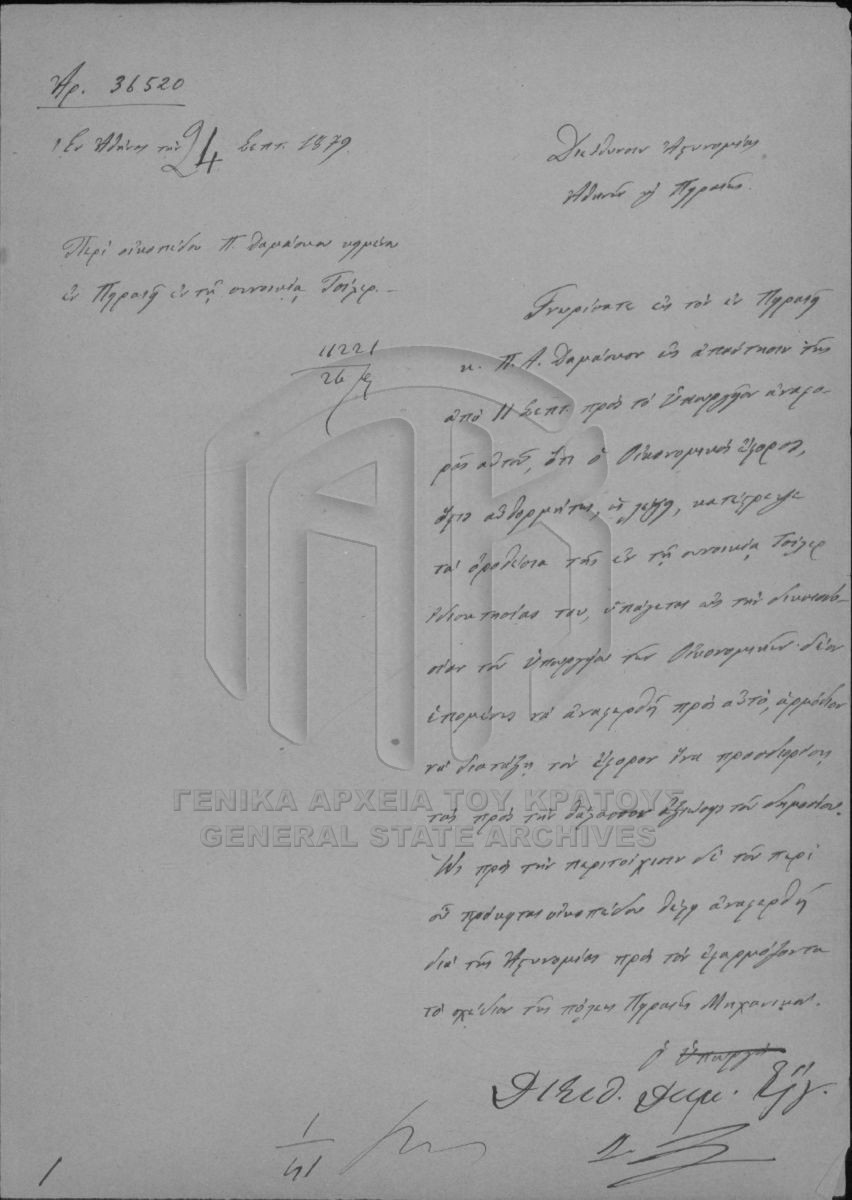 Ἀρ. 36520
Ἐν Ἀθήναις τὴν 24 Σεπτ. 1879.
Διεύθυνσιν Ἀστυνομίας
Ἀθηνῶν καὶ Πειραιῶς.
Περὶ οἰκοπέδου Π. Δαμάσκου κειμένου
ἐν Πειραιεῖ ἐν τῇ συνοικίᾳ
11221
26
Γνωρίσατε εἰς τὸν ἐν Πειραιεῖ
κ. Π. Α. Δαμάσκον εἰς ἀπάντησιν τῆς
ἀπὸ 11 Σεπτ. πρὸς τὸ Ὑπουργεῖον ἀναφο-
ρᾶς αὐτοῦ, ὅτι ὁ Οἰκονομικὸς ἔφορος,
ὅστις αὐθορμήτως, ὡς λέγει, κατέστρεψε
τὰ ὁροθέσια τῆς ἐν τῇ συνοικίᾳ
ἰδιοκτησίας του, ὑπάγεται εἰς τὴν δικαιοδο-
σίαν τοῦ Ὑπουργείου τῶν Οἰκονομικῶν· δέον
ἑπομένως νὰ ἀναφερθῇ πρὸς αὐτό, ἁρμόδιον
νὰ διατάξῃ τὸν ἔφορον ἵνα προσδιορίσῃ
τὰς πρὸς τὴν θάλασσαν ἀξιώσεις τοῦ δημοσίου.
Ὡς πρὸς τὴν περιτοίχισιν δὲ τοῦ περὶ
οὗ πρόκειται οἰκοπέδου θέλει ἀναφερθῆ
διὰ τῆς Ἀστυνομίας πρὸς τὸν ἐφαρμόζοντα
τὸ σχέδιον τῆς πόλεως Πειραιῶς Μηχανικόν.
Ὁ Ὑπουργὸς
Διευθ. Δημ. Ἔργ.
1
41
1
ΓΕΝΙΚΑ ΑΡΧΕΙΑ ΤΟΥ ΚΡΑΤΟΥΣ
GENERAL STATE ARCHIVES